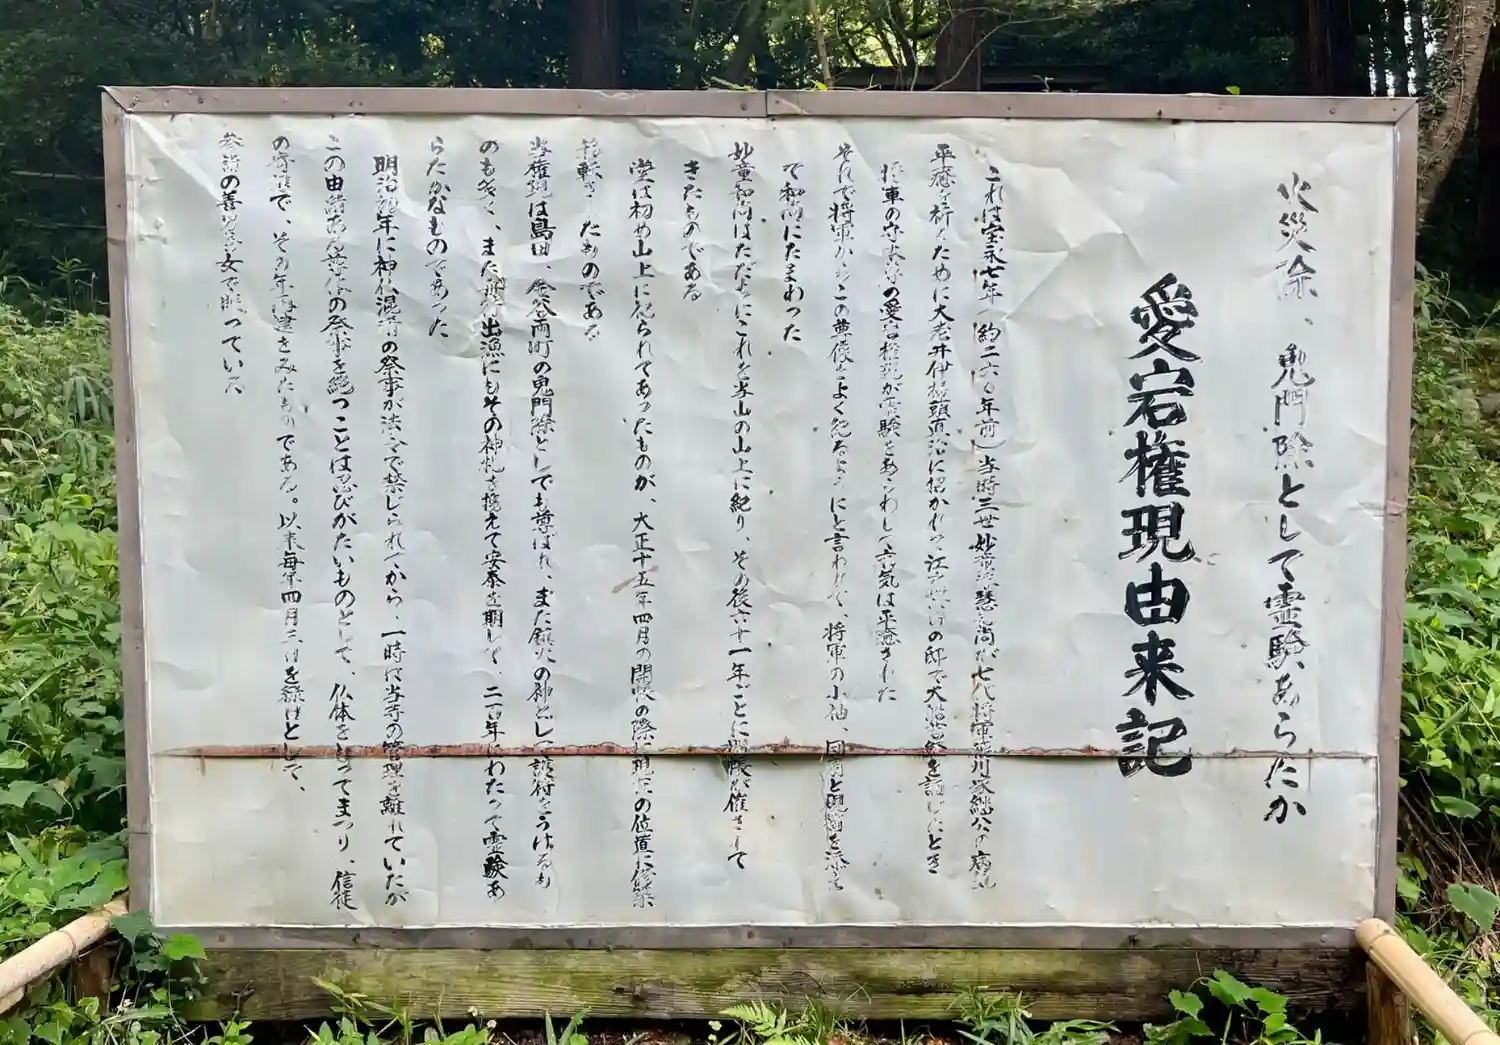 火災除、鬼門除として霊験あらたか
愛宕権現由来記
これは宝永七年(約二六〇年前)当時三世妙童 和尚が七代将軍 川家継公の病気
平癒を祈るために大老井伊掃部頭直治に招かれて江 の邸で大 を誦したとき
将軍の守 の愛宕権現が霊験をあらわして病気は平癒された
それで将軍からこの尊像をよく祀るようにと言われて、将軍の小袖、 と硯箱を添え
て和尚にたまわった
妙童和尚はただちにこれを当山の山上に祀り、その後六十一年ごとに開帳が催されて
きたものである
堂は初め山上に祀られてあったものが、大正十五年四月の開帳の際に現在の位置に修築
移転されたものである
当権現は島田、金谷両町の鬼門除としても尊ばれ、また鎮火の神として護符をうけるも
のも多く、また 出漁にもその神札を携えて安泰を期して、二百年にわたって霊験あ
らたかなものであった
明治 年に神仏混淆の祭事が法令で禁じられてから、一時は当寺の管理を離れていたが
この由緒ある尊体の祭事を絶つことは忍びがたいものとして、仏体をもってまつり、信徒
の寄進で、その年再建をみたものである。以来毎年四月三日を縁日として、
参詣の善男善女で賑っている